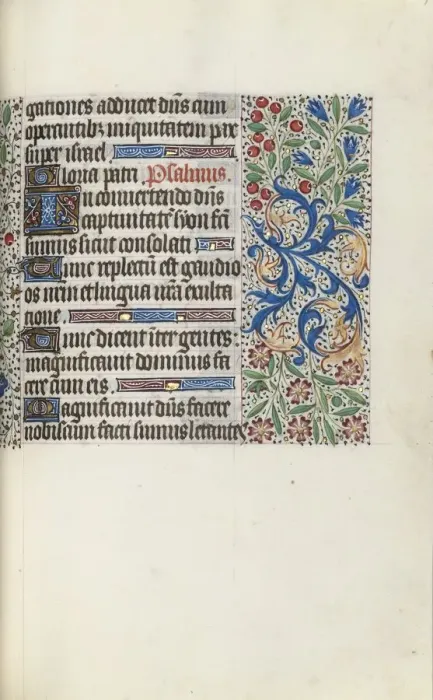 gationes adducet dn̄s cum
operantib; iniquitatem pax
super israel.
Gloria patri. Psalmus.
In convertendo dn̄s
captiuitatē syon fa͞
sumus sicut consolati
Tunc repletū est gaudio
os nr̄m et lingua nr̄a exulta
tione.
Tunc dicent iter gentes
magnificauit dominus fa
cere cum eis.
Magnificauit dn̄s facere
nobiscum facti sumus letantes